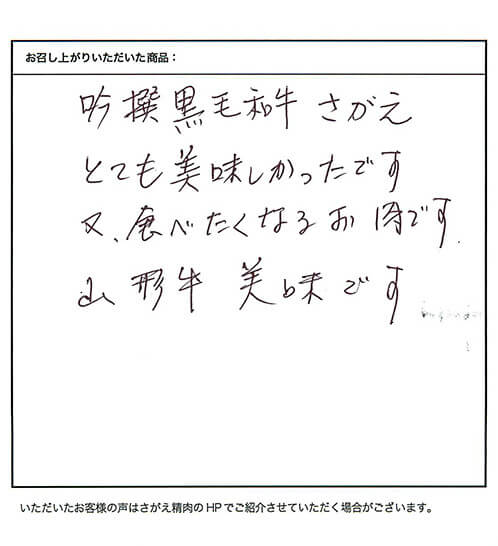 お召し上がりいただいた商品：
吟撰黒毛和牛 さがえ
とても美味しかったです
又、食べたくなるお肉です.
山形牛 美味です
いただいたお客様の声はさがえ精肉のHPでご紹介させていただく場合がございます。